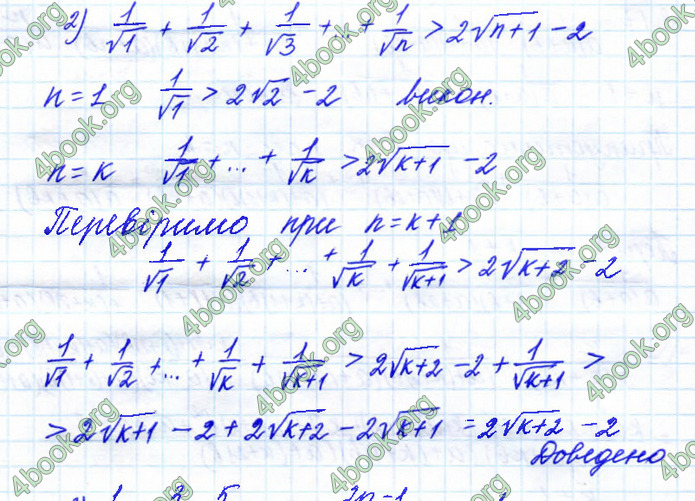 2) 1/√1 + 1/√2 + 1/√3 + ... + 1/√n > 2√(n+1) - 2
n = 1   1/√1 > 2√2 - 2   викон.
n = k   1/√1 + ... + 1/√k > 2√(k+1) - 2
Перевіримо при n = k+1
1/√1 + 1/√2 + ... + 1/√k + 1/√(k+1) > 2√(k+2) - 2
1/√1 + 1/√2 + ... + 1/√k + 1/√(k+1) > 2√(k+2) - 2 + 1/√(k+1) >
> 2√(k+1) - 2 + 2√(k+2) - 2√(k+1) = 2√(k+2) - 2
Доведено
4book.org